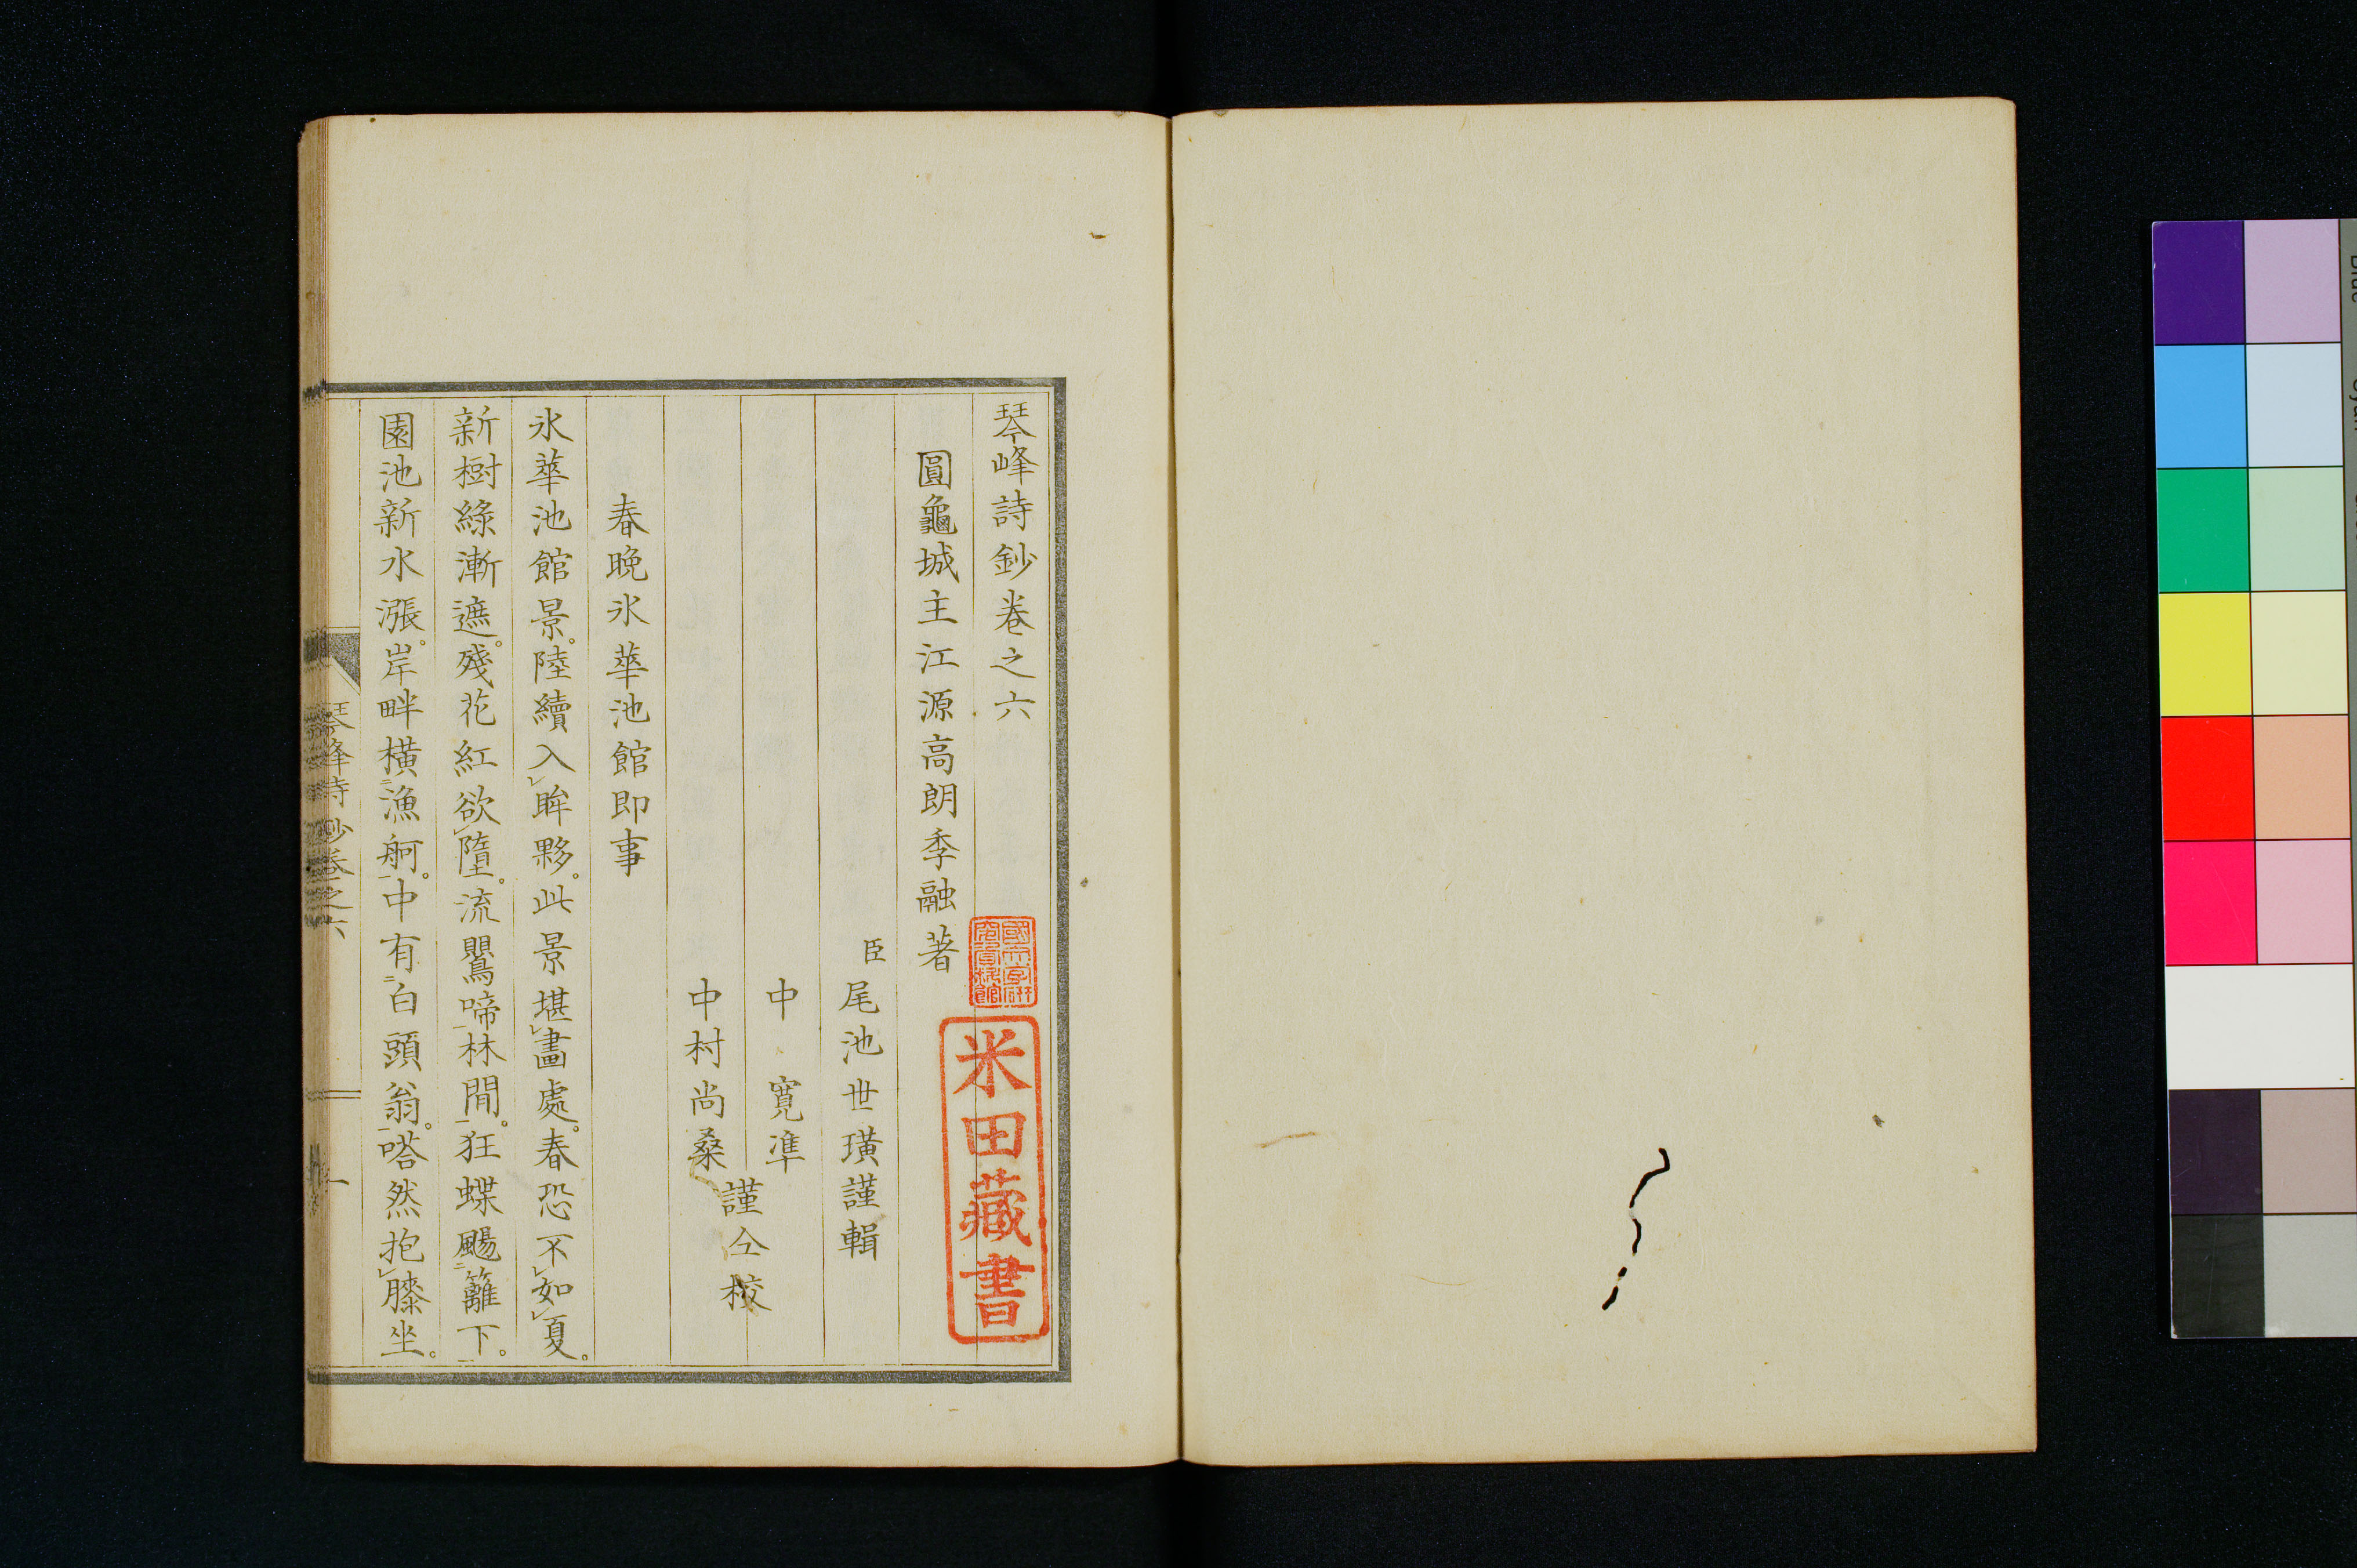 琴峰詩鈔卷之六
圓龜城主江源高朗季融著
臣尾池世璜謹輯
中寛準
中村尚桑
謹仝校
春晩氷華池館即事
氷華池館景。陸續入㆑眸夥。此景堪㆑畵處。春恐不㆑如㆑夏。
新樹綠漸遮。殘花紅欲㆑墮。流鸎啼㆓林間㆒。狂蝶颺㆓籬下㆒。
園池新水漲。岸畔橫㆓漁舸㆒。中有㆓白頭翁㆒。嗒然抱㆑膝坐。
琴峰詩鈔卷之六
一
國文學研究資料館
米田藏書